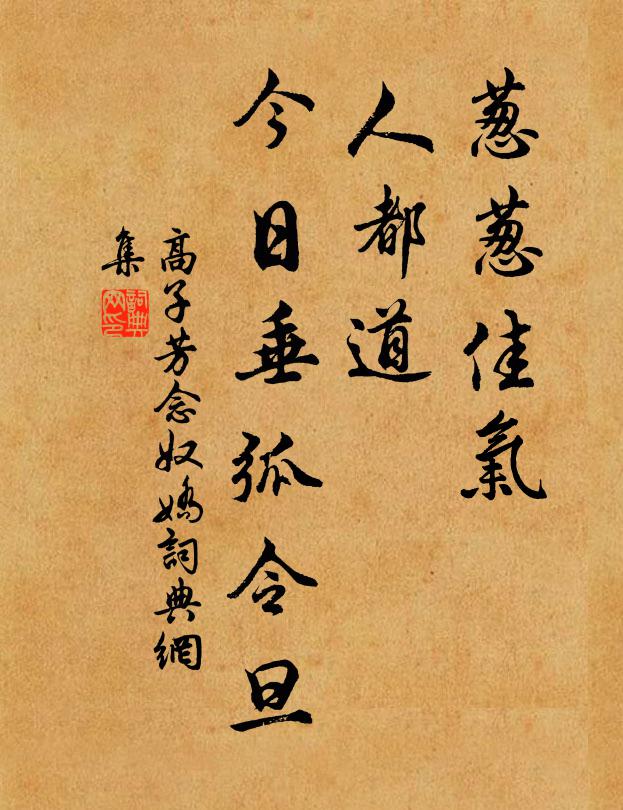 葱葱佳氣
人都道
今日垂弧令旦
高子芳念奴嬌詞典網
集
詞典
网印